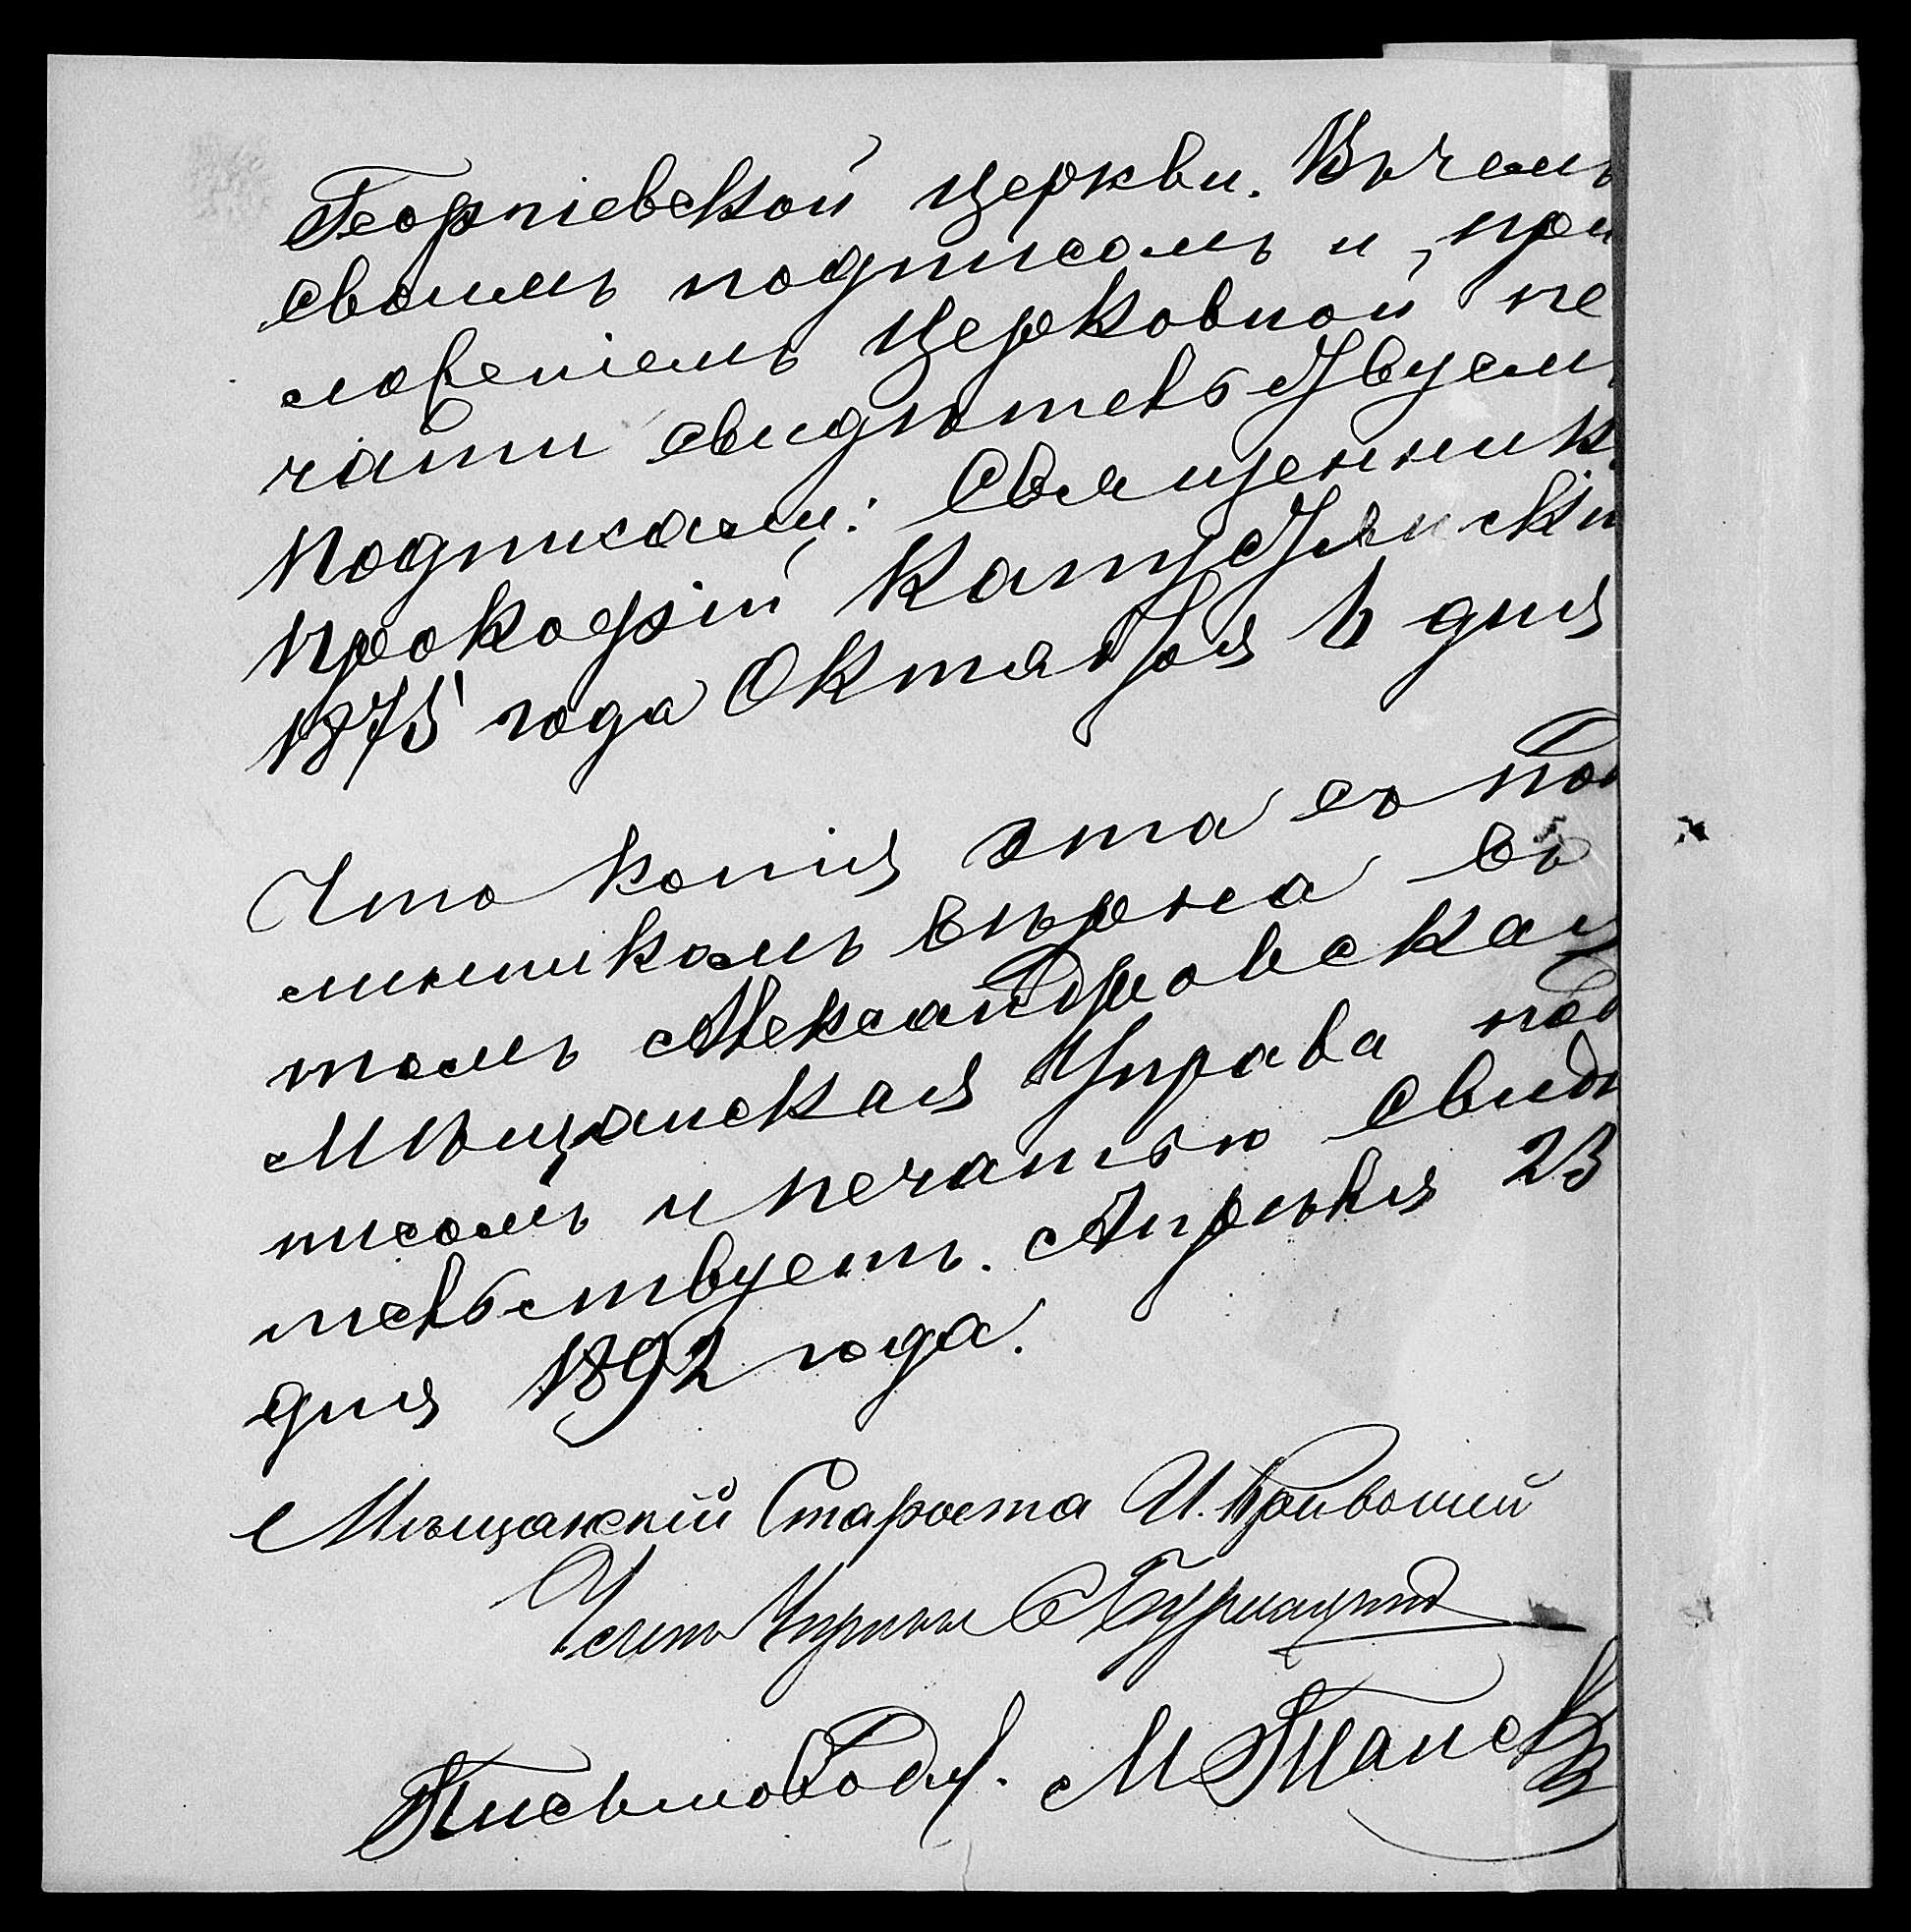 Георгіевской церкви. Въ чемъ
своимъ подписомъ и при
ложеніемъ церковной пе
чати свидѣтельствуемъ
подписали: Священникъ
Прокофій
1875 года Октября 6 дня
Что копія эта съ под
линникомъ вѣрна въ
томъ Александровская
Мѣщанская Управа под
писомъ и печатью свидѣ
тельствуетъ. Апрѣля 23
дня 1892 года.
Мѣщанскій Староста И.
Членъ Управы
Письмоводъ. М